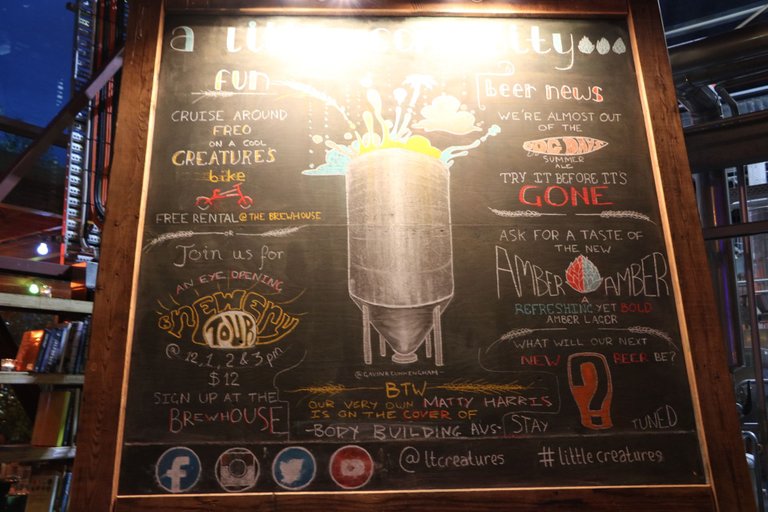 a
fun
CRUISE AROUND
FREO
ON A COOL
CREATURES
bike
FREE RENTAL @ THE BREWHOUSE
OR
Join us for
AN EYE OPENING
BREWERY
TOUR
@ 12, 1, 2 & 3 pm
$12
SIGN UP AT THE
BREWHOUSE
@GAVINKCUNNINGHAM
BTW
OUR VERY OWN MATTY HARRIS
IS ON THE COVER OF
-BODY BUILDING AUS-
beer news
WE'RE ALMOST OUT
OF THE
DAYS
SUMMER
ALE
TRY IT BEFORE IT'S
GONE
ASK FOR A TASTE OF
THE NEW
AMBER AMBER
A
REFRESHING YET BOLD
AMBER LAGER
WHAT WILL OUR NEXT
NEW BEER BE?
?
STAY TUNED
@ltcreatures #littlecreatures